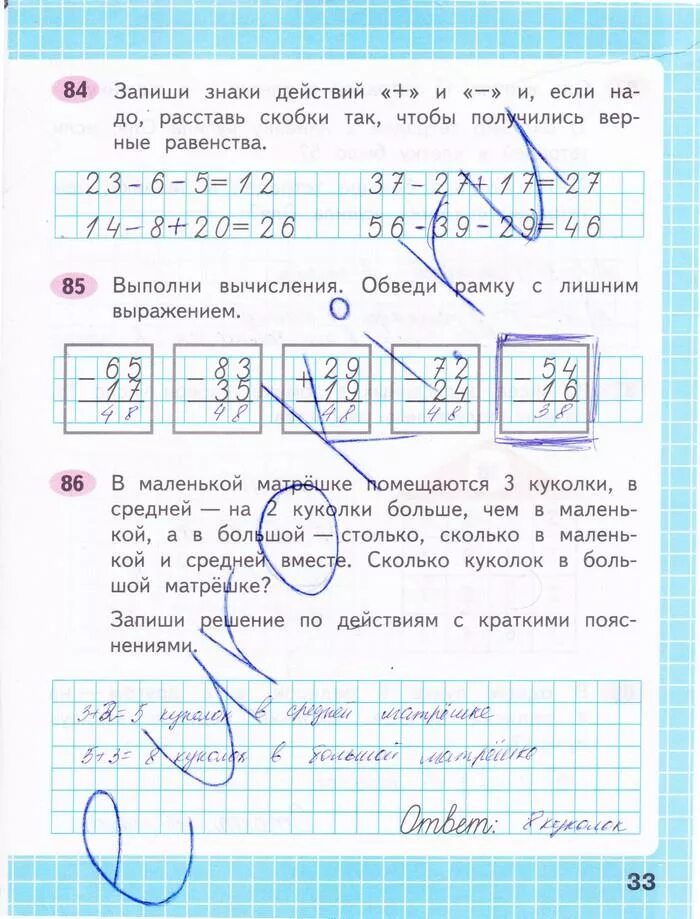 84 Запиши знаки действий «+» и «—» и, если на-
до, расставь скобки так, чтобы получились вер-
ные равенства.
23-6-5=12 37-27+17=27
14-8+20=26 56-(39-29)=46
85 Выполни вычисления. Обведи рамку с лишним
выражением.
- 65 - 83 + 29 - 72 - 54
17 35 19 24 16
48 48 48 48 38
86 В маленькой матрёшке помещаются 3 куколки, в
средней — на 2 куколки больше, чем в малень-
кой, а в большой — столько, сколько в малень-
кой и средней вместе. Сколько куколок в боль-
шой матрёшке?
Запиши решение по действиям с краткими пояс-
нениями.
3+2=5 куколок в средней матрёшке
5+3=8 куколок в большой матрёшке
Ответ: 8 куколок
33
eurokI.ru